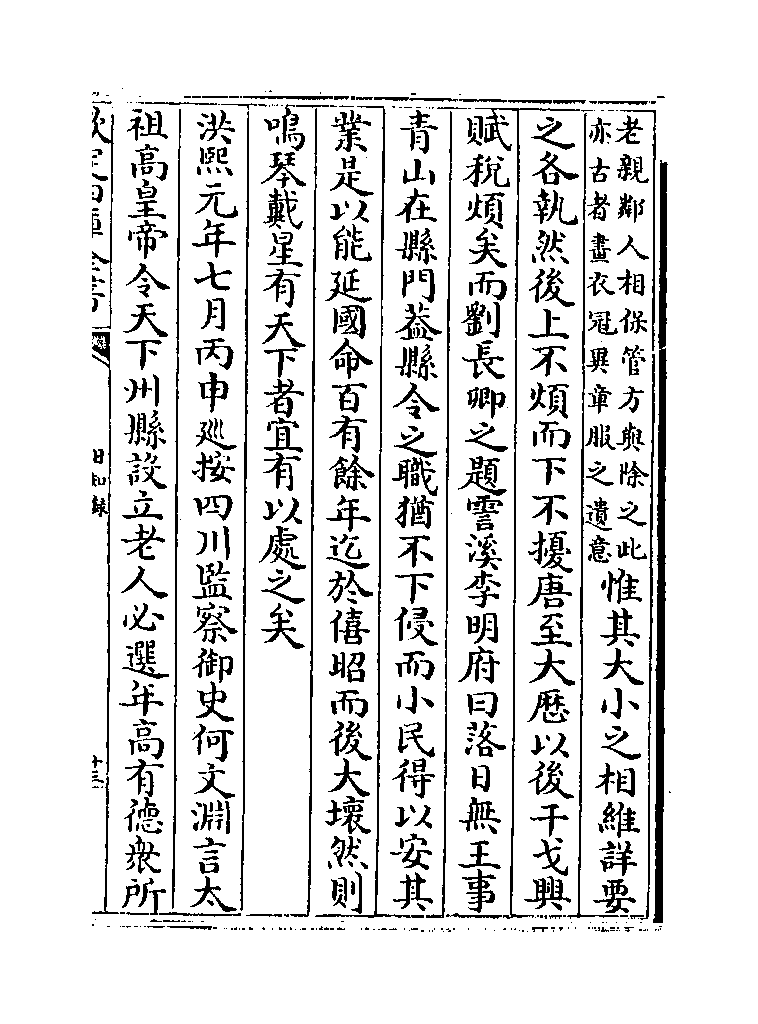 老親鄰人相保管方與除之此
亦古者畫衣冠異章服之遺意
惟其大小之相維詳要
之各執然後上不煩而下不擾唐至大厯以後干戈興
賦稅煩矣而劉長卿之題霅溪李明府曰落日無王事
青山在縣門葢縣令之職猶不下侵而小民得以安其
業是以能延國命百有餘年迄於僖昭而後大壞然則
鳴琴戴星有天下者宜有以處之矣
洪熙元年七月丙申廵按四川監察御史何文淵言太
祖高皇帝令天下州縣設立老人必選年高有德衆所
欽定四庫全書
日知錄